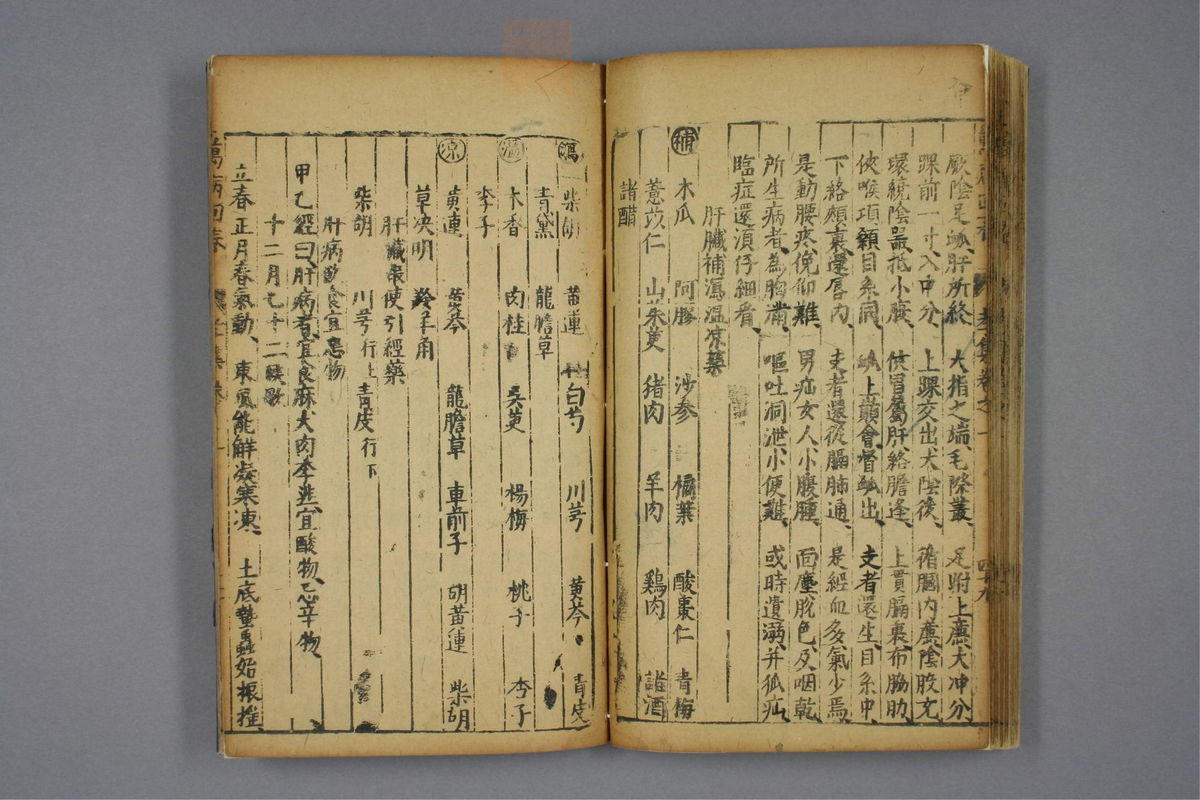 厥陰足𧖴肝所終 大指之端毛際叢 足跗上廉大冲分
踝前一寸入中分 上踝交出太陰後 循膕內廉陰股充
環繞陰器抵小腹 俠胃屬肝絡膽逢 上貫膈裏布脇肋
俠喉項顙目系同 𧖴上巔會督𧖴出 支者還生目系中
下絡頰裏還唇內 支者還從膈肺通 是經血多氣少焉
是動腰疼俛仰難 男疝女人小腹腫 面塵脫色及咽乾
所生病者為胸滿 嘔吐洞泄小便難 或時遺溺并狐疝
臨症還湏仔細看
肝臟補瀉溫凉藥
補 木瓜 阿膠 沙參 橘葉 酸棗仁 青梅
薏苡仁 山茱萸 猪肉 羊肉 鷄肉 諸酒
諸醋
瀉 柴胡 黃連 白芍 川芎 黃芩 青皮
青黛 龍膽草
溫 木香 肉桂 吳萸 楊梅 桃子 杏子
李子
凉 黃連 黃芩 龍膽草 車前子 胡黃連 柴胡
草决明 羚羊角
肝臟 使引經藥
柴胡 川芎行上 青皮行下
肝病 食宜忌物
甲乙經曰肝病者宜食麻犬肉李韭宜酸物忌辛物
十二月七十二候歌
立春正月春氣動 東風能解凝寒凍 土底蟄蟲始振搖
萬病回春